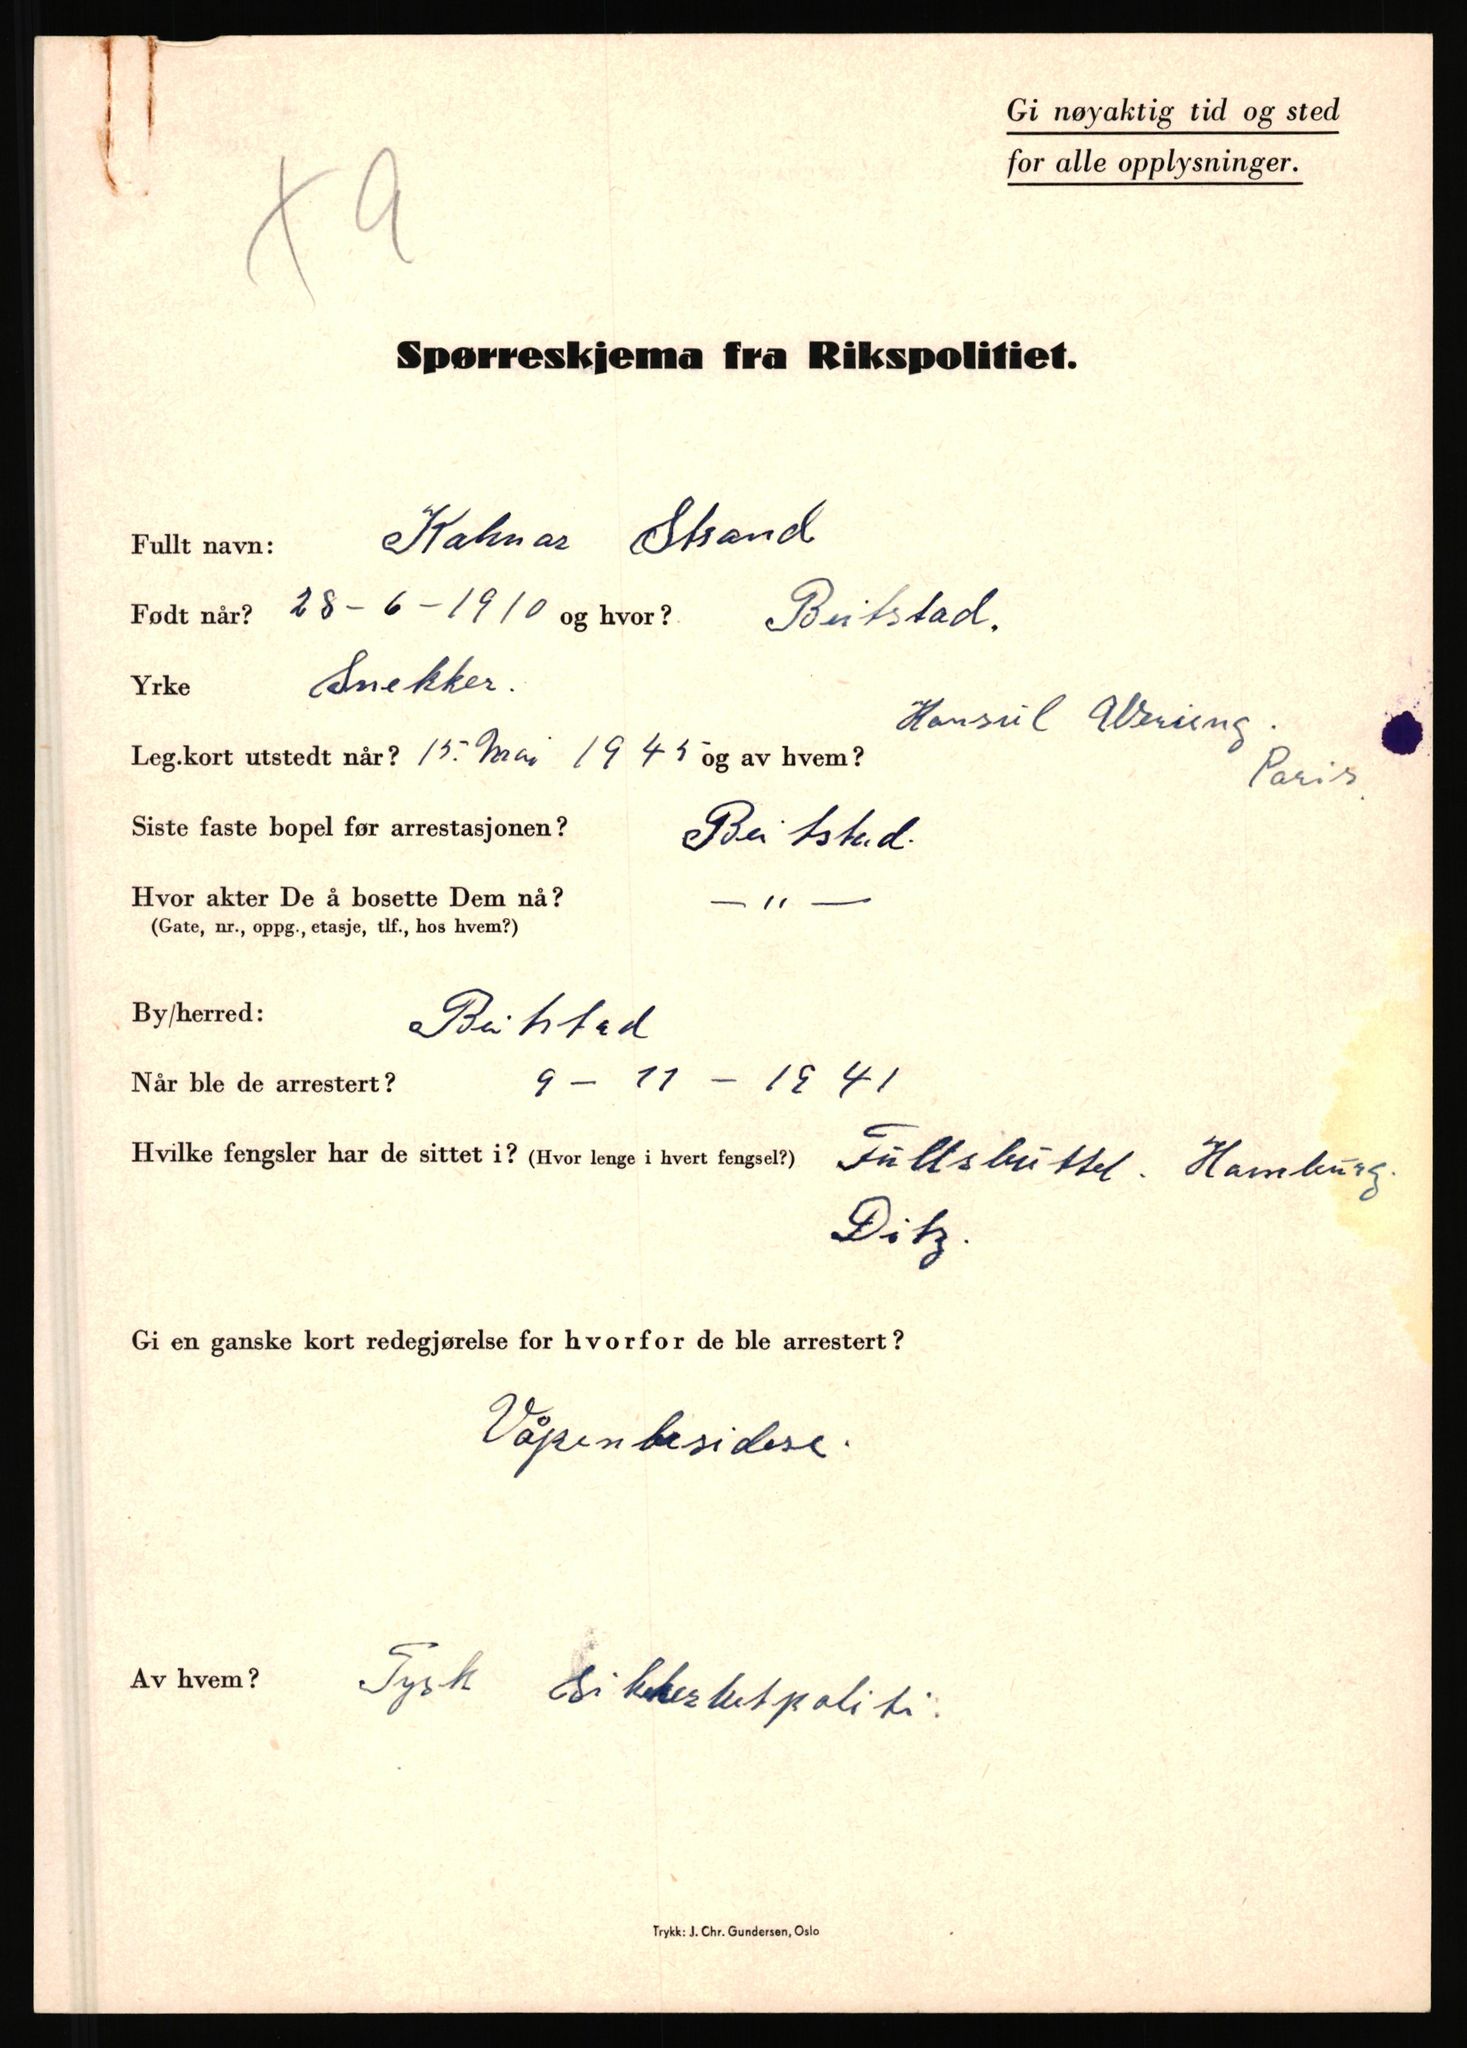 Gi nøyaktig tid og sted
for alle opplysninger.
+ 9
Spørreskjema fra Rikspolitiet.
Fullt navn: Kalmar Strand
Født når? 28-6-1910 og hvor? Beitstad.
Yrke Snekker.
Leg.kort utstedt når? 15. Mai 1945 og av hvem? Konsul
Paris.
Siste faste bopel før arrestasjonen? Beitstad.
Hvor akter De å bosette Dem nå? — " —
(Gate, nr., oppg., etasje, tlf., hos hvem?)
By/herred: Beitstad
Når ble de arrestert? 9 - 11 - 1941
Hvilke fengsler har de sittet i? (Hvor lenge i hvert fengsel?) Fullsbüttel. Hamburg.
Ditz.
Gi en ganske kort redegjørelse for hvorfor de ble arrestert?
Våpenbesidese.
Av hvem? Tysk sikkerhetpoliti.
Trykk: J. Chr. Gundersen, Oslo